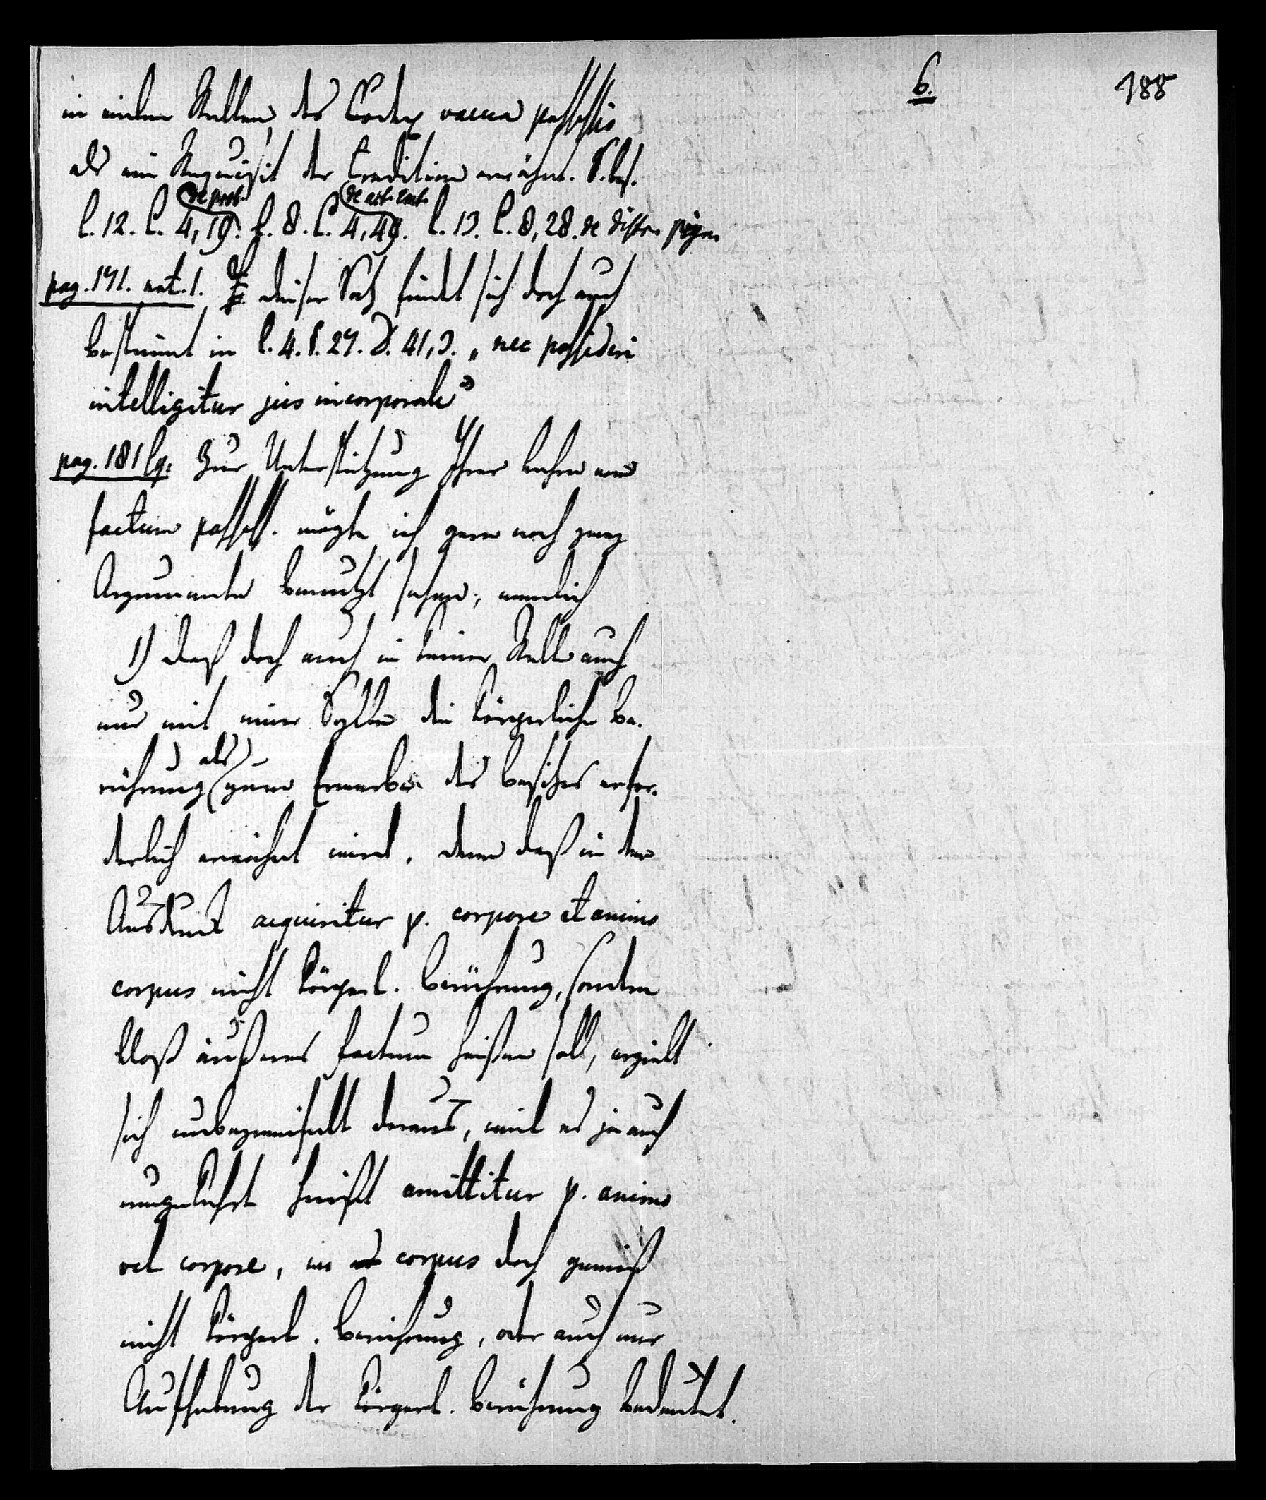 6.
188
in vielen Stellen des Codex vacua possessio
als ein Requisit der Tradition erwähnt. S. bes.
de prob. de act. emt.
l. 12. C. 4, 19. l. 8. C. 4, 49. l. 13. C. 8, 28. de distr. pign.
pag. 141. not. 1. dieser Satz findet sich doch auch
bestimmt in l. 4. §. 27. D. 41, 3. „nec possideri
intelligitur jus incorporale“
pag. 181 sq. Zur Unterstützung Ihrer Lehre vom
factum possess. mögte ich gern noch zwey
Argumente benutzt sehen, nemlich
1) daß doch auch in keiner Stelle auch
nur mit einer Sylbe die körperliche Be-
als
rührung zum Erwerbe des Besitzes erfor-
derlich erwähnt wird. Denn daß in dem
Ausdruck acquiritur p. corpore et animo
corpus nicht körperl. Berührung, sondern
bloß äußeres factum heißen soll, ergiebt
sich unbezweifelt daraus, weil es ja auch
umgekehrt heißt amittitur p. animo
vel corpore, wo corpus doch gewiß
nicht körperl. Berührung, oder auch nur
Aufhebung der körperl. Berührung bedeutet.